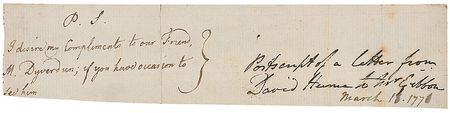 P. S.
I desire my Compliments to our Friend,
M. Dyverdun; if you have occasion to
see him
Postscript of a letter from
David Hume to Mr Gibbon
March 18. 1776